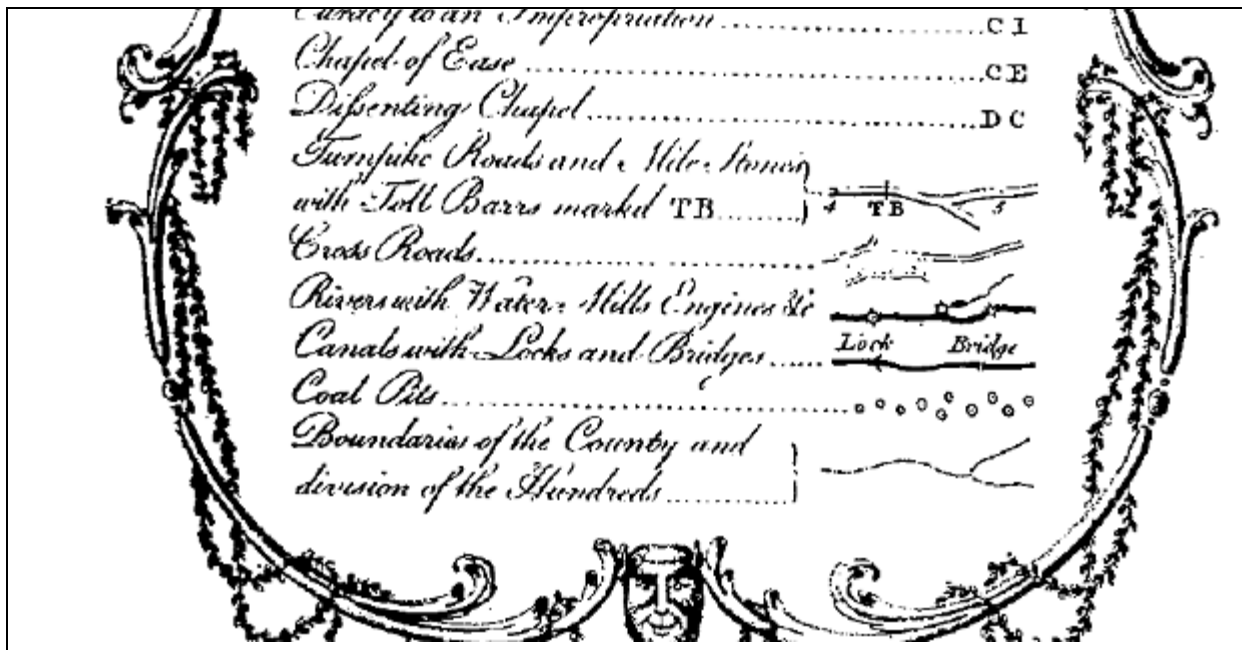 Curacy to an Impropriation ........ C I
Chapel of Ease ........ C E
Difsenting Chapel ........ D C
Turnpike Roads and Mile Stones
with Toll Barrs markd TB ........ 4 TB 5
Cross Roads ........
Rivers with Water Mills Engines &c
Canals with Locks and Bridges ........ Lock Bridge
Coal Pits ........
Boundaries of the County and
division of the Hundreds ........